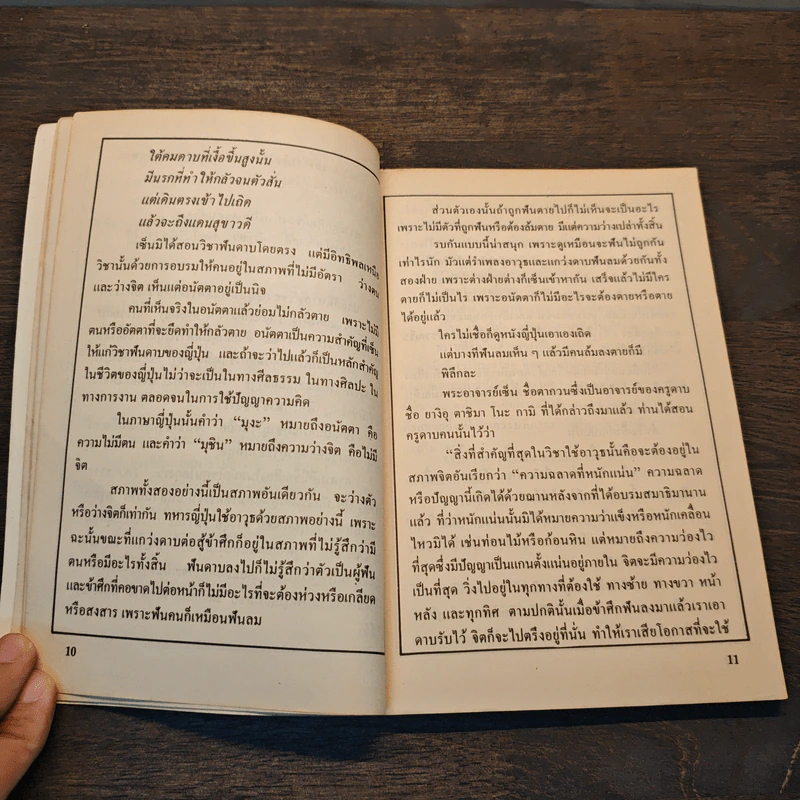 ใต้คมดาบที่เงื้อขึ้นสูงนั้น
มีนรกที่ทำให้กลัวจนตัวสั่น
แต่เดินตรงเข้าไปเถิด
แล้วจะถึงแดนสุขาวดี
เซ็นมิได้สอนวิชาฟันดาบโดยตรง แต่มีอิทธิพลเหนือ
วิชานั้นด้วยการอบรมให้คนอยู่ในสภาพที่ไม่มีอัตรา ว่างตน
และว่างจิต เห็นแต่อนัตตาอยู่เป็นนิจ
คนที่เห็นจริงในอนัตตาแล้วย่อมไม่กลัวตาย เพราะไม่มี
ตนหรืออัตตาที่จะยึดทำให้กลัวตาย อนัตตาเป็นความสำคัญที่เซ็น
ให้แก่วิชาฟันดาบของญี่ปุ่น และถ้าจะว่าไปแล้วก็เป็นหลักสำคัญ
ในชีวิตของญี่ปุ่นไม่ว่าจะเป็นในทางศีลธรรม ในทางศิลปะ ใน
ทางการงาน ตลอดจนในการใช้ปัญญาความคิด
ในภาษาญี่ปุ่นนั้นคำว่า “มุงะ” หมายถึงอนัตตา คือ
ความไม่มีตน และคำว่า “มุชิน” หมายถึงความว่างจิต คือไม่มี
จิต
สภาพทั้งสองอย่างนี้เป็นสภาพอันเดียวกัน จะว่างตัว
หรือว่างจิตก็เท่ากัน ทหารญี่ปุ่นใช้อาวุธด้วยสภาพอย่างนี้ เพราะ
ฉะนั้นขณะที่แกว่งดาบต่อสู้ข้าศึกก็อยู่ในสภาพที่ไม่รู้สึกว่ามี
ตนหรือมีอะไรทั้งสิ้น ฟันดาบลงไปก็ไม่รู้สึกว่าตัวเป็นผู้ฟัน
และข้าศึกที่คอขาดไปต่อหน้าก็ไม่มีอะไรที่จะต้องห่วงหรือเกลียด
หรือสงสาร เพราะฟันคนก็เหมือนฟันลม
10
ส่วนตัวเองนั้นถ้าถูกฟันตายไปก็ไม่เห็นจะเป็นอะไร
เพราะไม่มีตัวที่ถูกฟันหรือต้องล้มตาย มีแต่ความว่างเปล่าทั้งสิ้น
รบกันแบบนี้น่าสนุก เพราะดูเหมือนจะฟันไม่ถูกกัน
เท่าไรนัก มัวแต่รำเพลงอาวุธและแกว่งดาบฟันลมด้วยกันทั้ง
สองฝ่าย เพราะต่างฝ่ายต่างก็เซ็นเข้าหากัน เสร็จแล้วไม่มีใคร
ตายก็ไม่เป็นไร เพราะอนัตตาก็ไม่มีอะไรจะต้องตายหรือตาย
ได้อยู่แล้ว
ใครไม่เชื่อก็ดูหนังญี่ปุ่นเอาเองเถิด
แต่บางทีฟันลมเห็น ๆ แล้วมีคนล้มลงตายก็มี
พิลึกละ
พระอาจารย์เซ็น ชื่อตากวนซึ่งเป็นอาจารย์ของครูดาบ
ชื่อ ยางิอุ ตาชิมา โนะ กามิ ที่ได้กล่าวถึงมาแล้ว ท่านได้สอน
ครูดาบคนนั้นไว้ว่า
“สิ่งที่สำคัญที่สุดในวิชาใช้อาวุธนั้นคือจะต้องอยู่ใน
สภาพจิตอันเรียกว่า “ความฉลาดที่หนักแน่น” ความฉลาด
หรือปัญญานี้เกิดได้ด้วยฌานหลังจากที่ได้อบรมสมาธิมานาน
แล้ว ที่ว่าหนักแน่นนั้นมิได้หมายความว่าแข็งหรือหนักเคลื่อน
ไหวมิได้ เช่นท่อนไม้หรือก้อนหิน แต่หมายถึงความว่องไว
ที่สุดซึ่งมีปัญญาเป็นแกนตั้งแน่นอยู่ภายใน จิตจะมีความว่องไว
เป็นที่สุด วิ่งไปอยู่ในทุกทางที่ต้องใช้ ทางซ้าย ทางขวา หน้า
หลัง และทุกทิศ ตามปกตินั้นเมื่อข้าศึกฟันลงมาแล้วเราเอา
ดาบรับไว้ จิตก็จะไปตรึงอยู่ที่นั่น ทำให้เราเสียโอกาสที่จะใช้
11